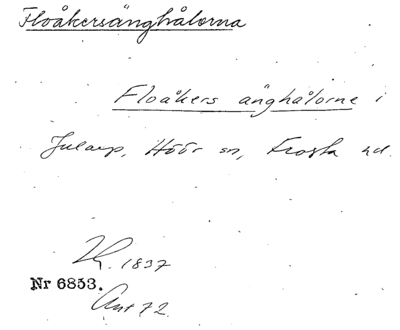 Floåkersänghålorna
Floåkers änghålorne i
Jularp, Höör sn, Frosta hd.
1837
Nr 6853.
Ant 72.